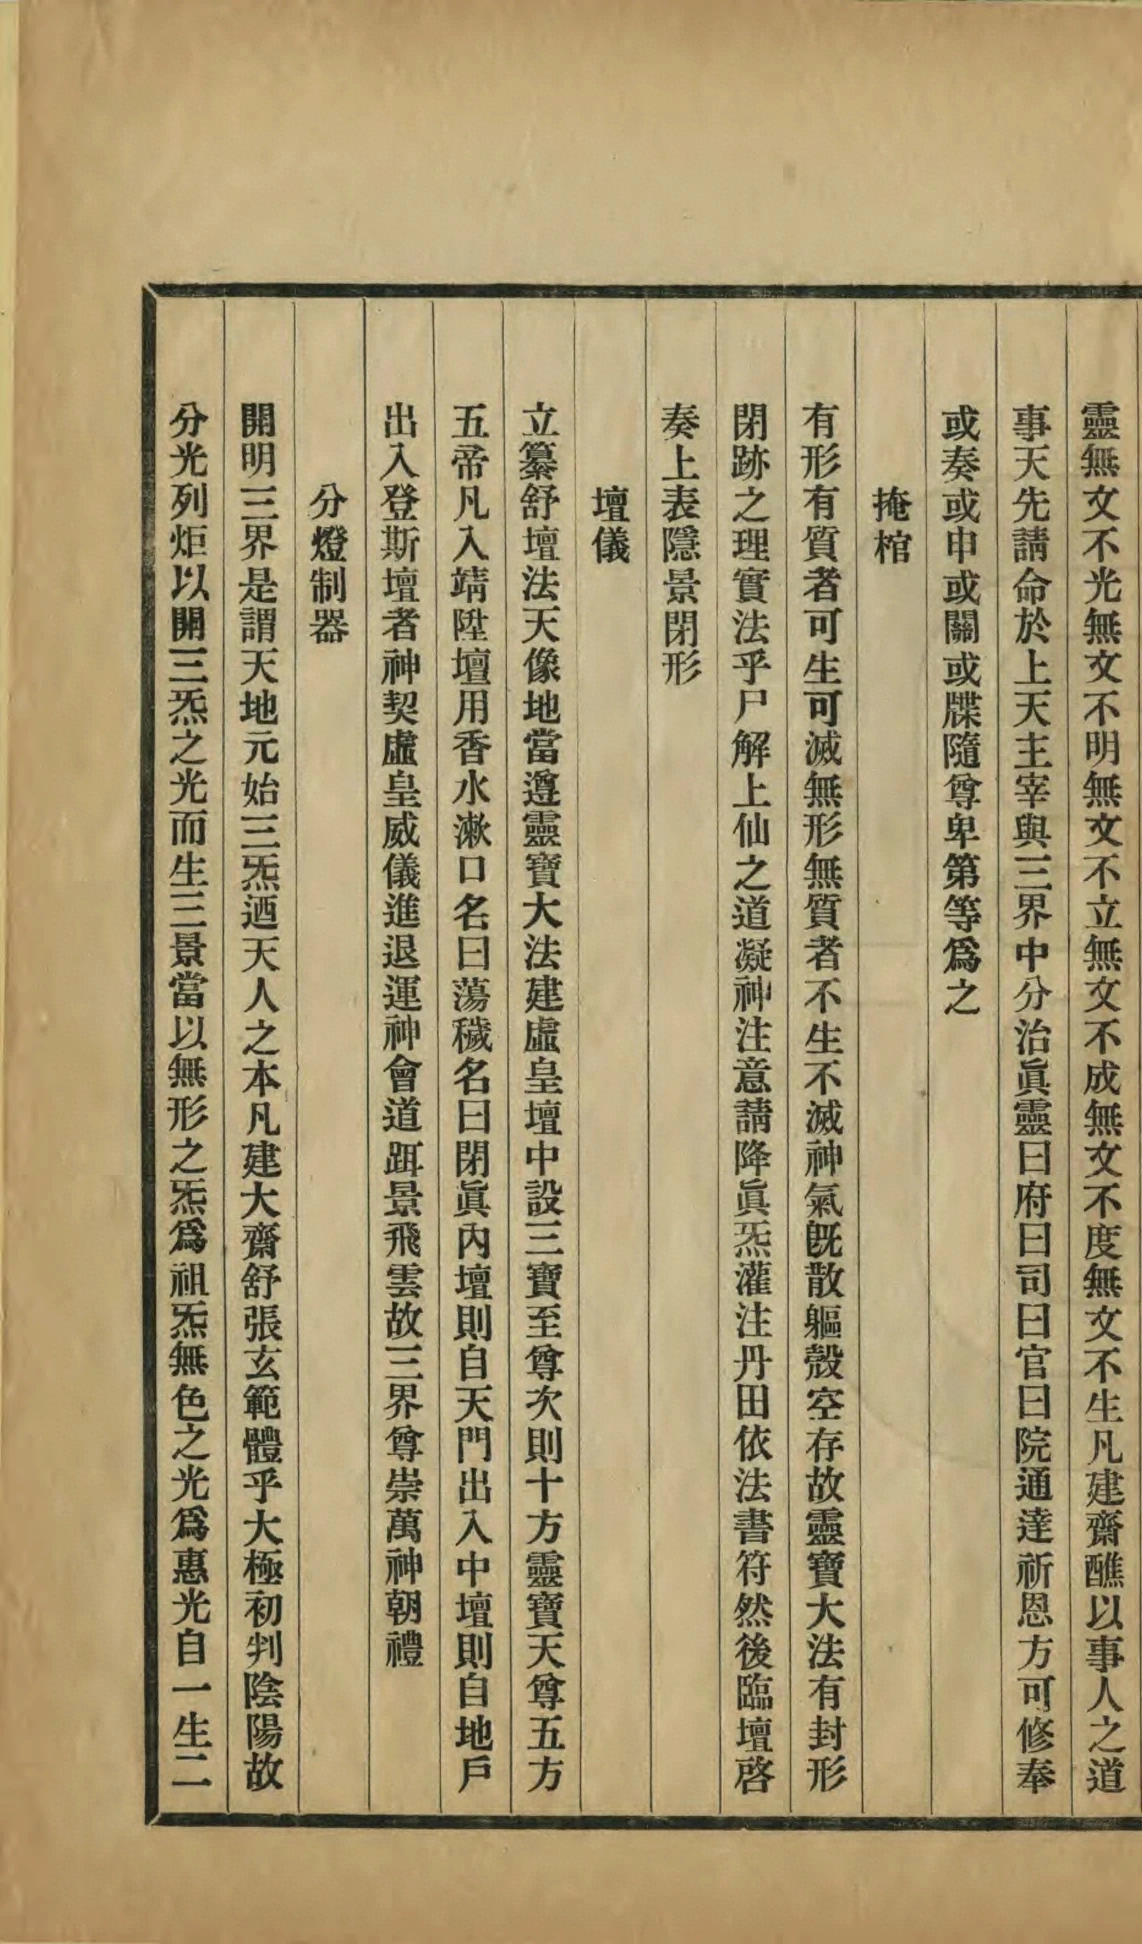 靈無文不光無文不明無文不立無文不成無文不度無文不生凡建齋醮以事人之道
事天先請命於上天主宰與三界中分治眞靈曰府曰司曰官曰院通達祈恩方可修奉
或奏或申或關或牒隨尊卑第等爲之
掩棺
有形有質者可生可滅無形無質者不生不滅神氣旣散軀殼空存故靈寶大法有封形
閉跡之理實法乎尸解上仙之道凝神注意請降眞炁灌注丹田依法書符然後臨壇啓
奏上表隱景閉形
壇儀
立纂舒壇法天像地當遵靈寶大法建虛皇壇中設三寶至尊次則十方靈寶天尊五方
五帝凡入靖陞壇用香水漱口名曰蕩穢名曰閉眞內壇則自天門出入中壇則自地戶
出入登斯壇者神契虛皇威儀進退運神會道跙景飛雲故三界尊崇萬神朝禮
分燈制器
開明三界是謂天地元始三炁迺天人之本凡建大齋舒張玄範體乎大極初判陰陽故
分光列炬以開三炁之光而生三景當以無形之炁爲祖炁無色之光爲惠光自一生二